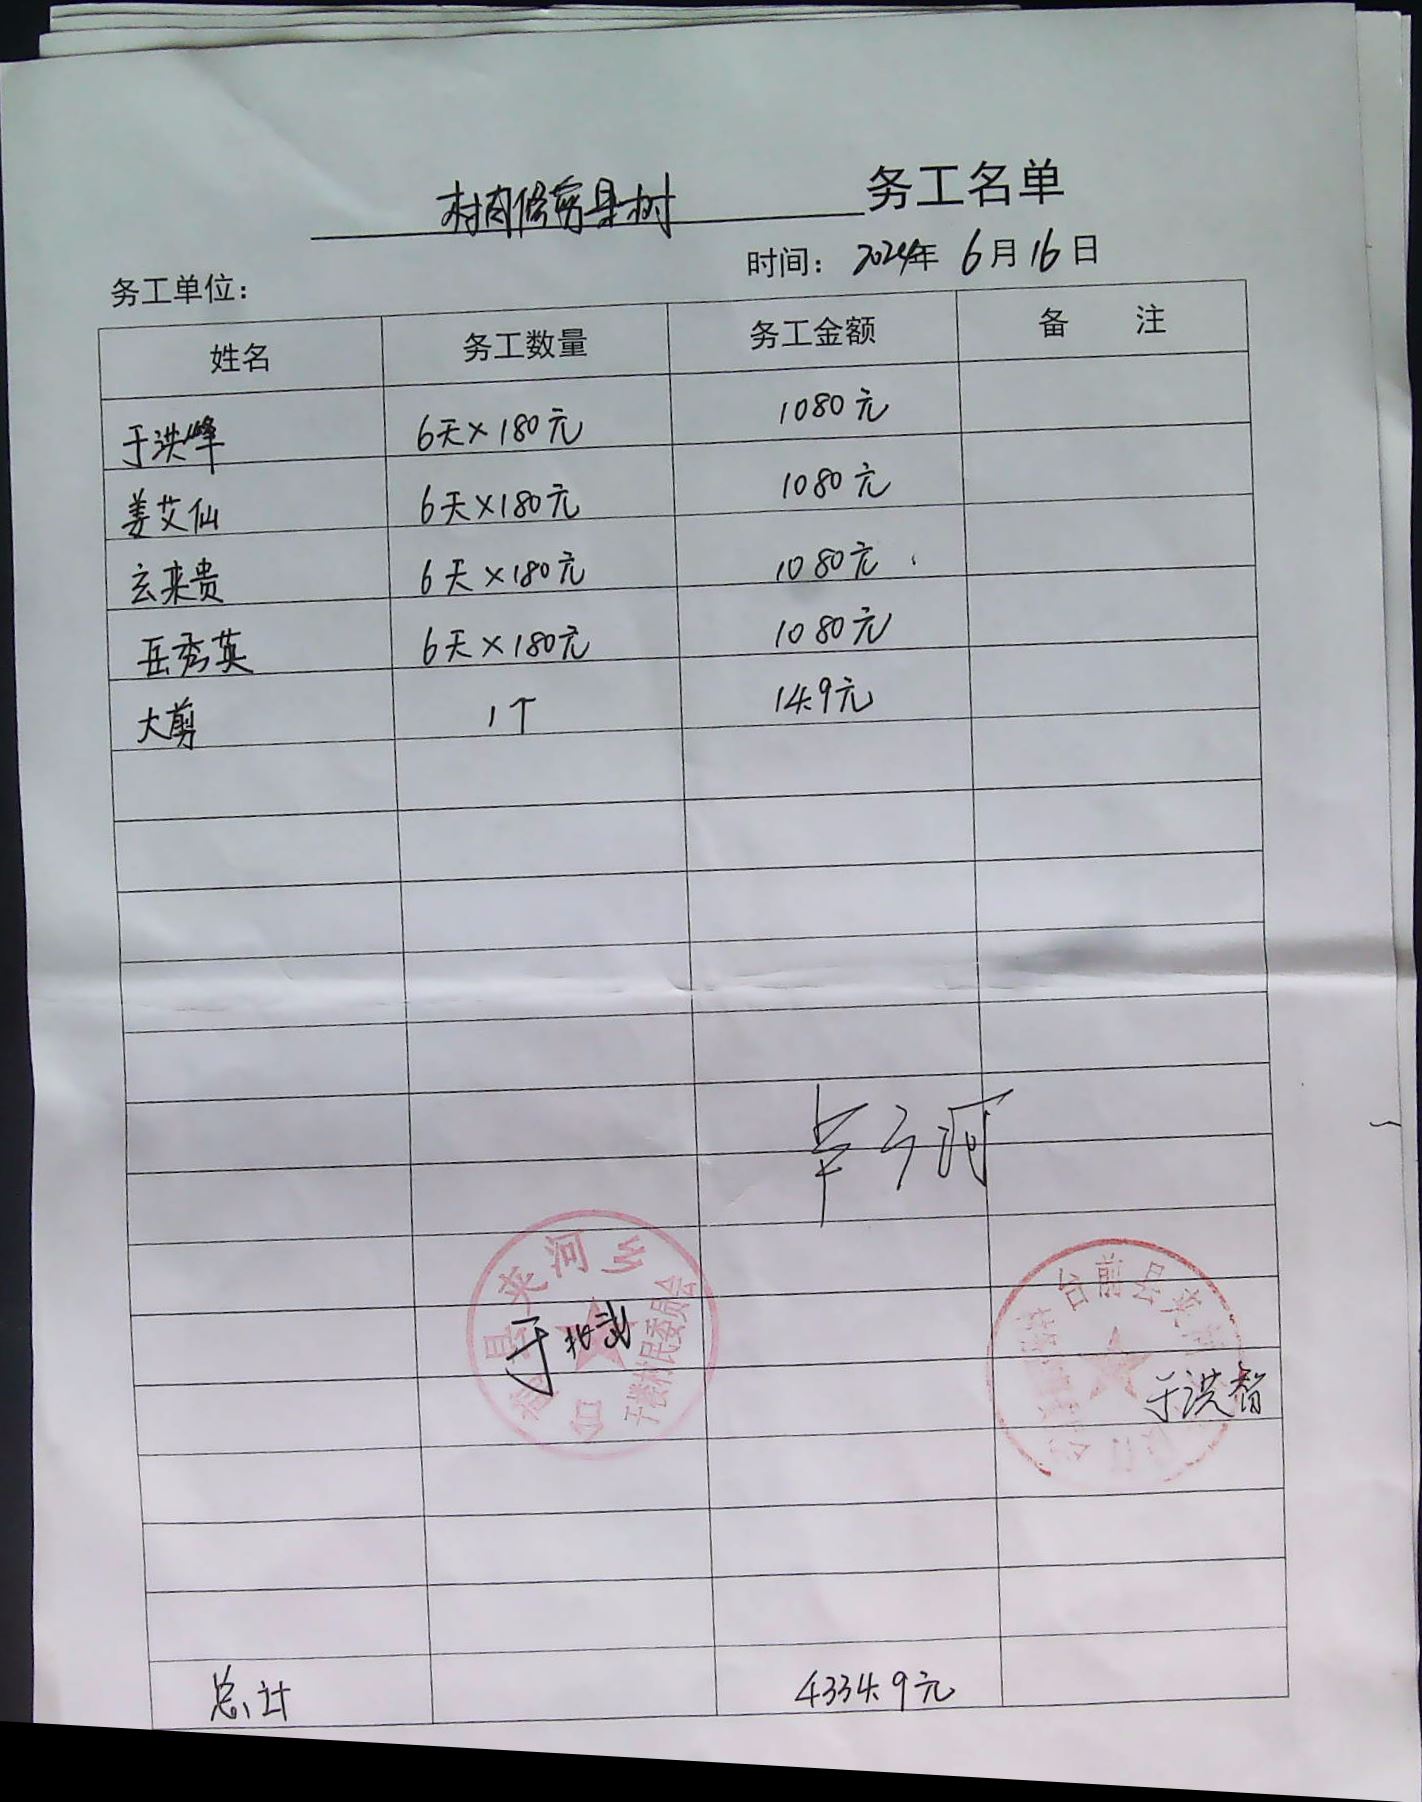 村内修剪果树 务工名单
务工单位： 时间：2024年 6月16日
姓名 务工数量 务工金额 备 注
于洪峰 6天×180元 1080元
姜艾仙 6天×180元 1080元
玄来贵 6天×180元 1080元
岳秀英 6天×180元 1080元
大剪 1个 14.9元
河
台前县夹河乡
于楼村民委员会
于
台前县夹
于洪智
总计 4334.9元